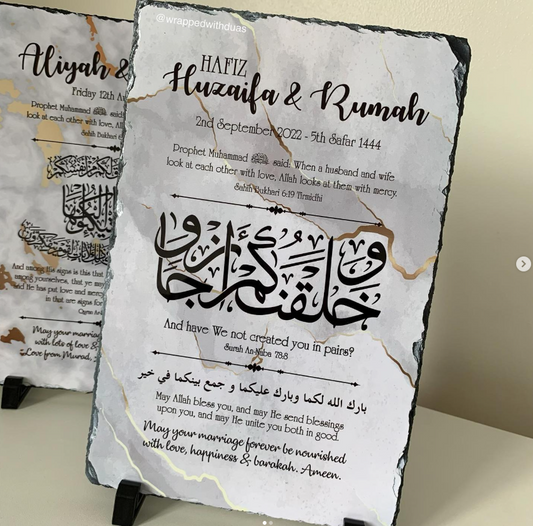 @wrappedwithduas
HAFIZ
Huzaifa & Rumah
2nd September 2022 - 5th Safar 1444
Prophet Muhammad ﷺ said: When a husband and wife
look at each other with love, Allah looks at them with mercy.
Sahih Bukhari 6:19 Tirmidhi
وخلقنكم أزواجا
And have We not created you in pairs?
Surah An-Naba 78:8
بارك الله لكما وبارك عليكما و جمع بينكما في خير
May Allah bless you, and may He send blessings
upon you, and may He unite you both in good.
May your marriage forever be nourished
with love, happiness & barakah. Ameen.
Aliyah &
Friday 12th Au
Prophet Muhammad ﷺ said:
look at each other with love, All
Sahih Bukhari 6
And among His signs is this that
among yourselves, that ye may
and He has put love and mercy
in that are signs for
Quran Ar
May your marriage
with lots of love &
Love from Murad,